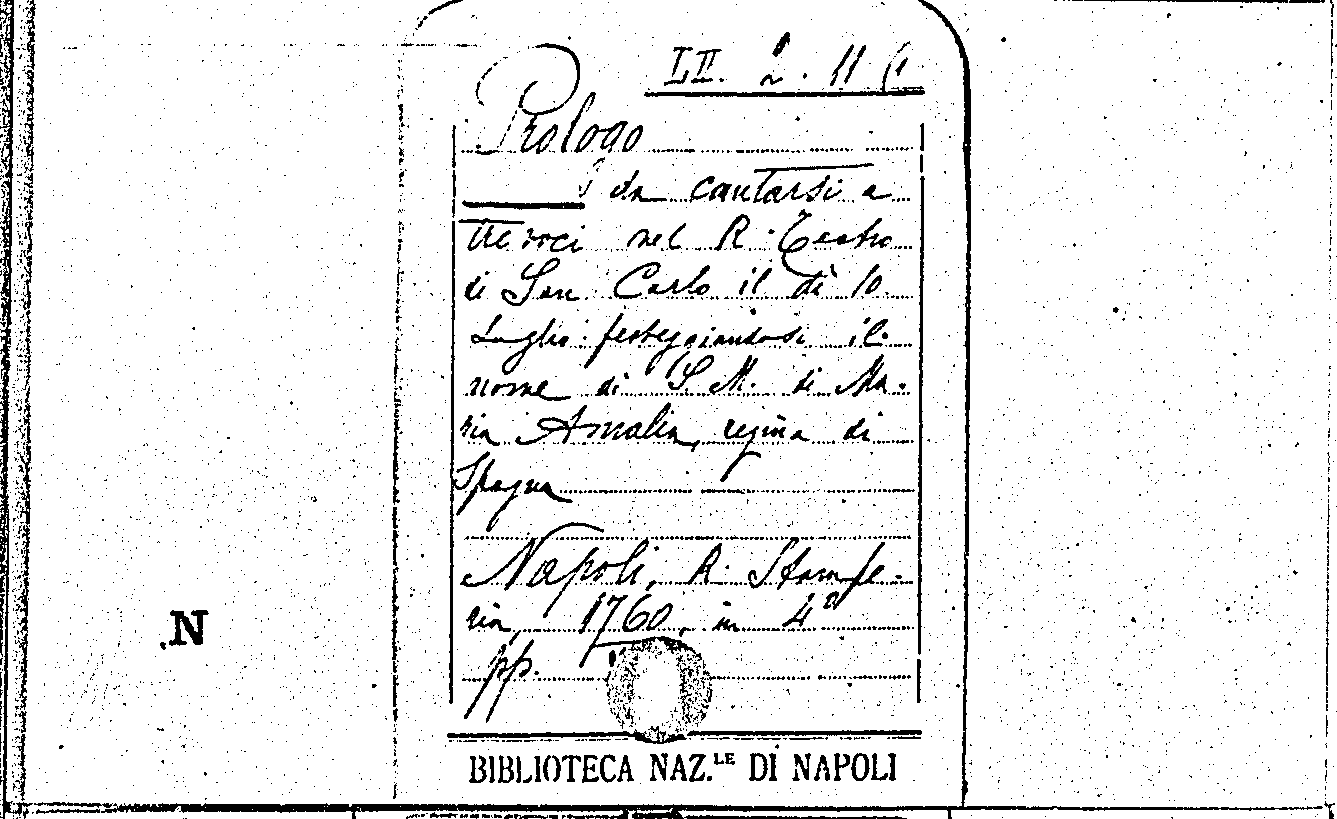 LII. 2. 11 (1
Prologo
da cantarsi a
tre voci nel R. Teatro
di San Carlo il dì 10
Luglio festeggiandosi il
nome di S. M. di Ma-
ria Amalia, regina di
Spagna
Napoli, R. Stampe-
ria, 1760, in 4º
pp.
BIBLIOTECA NAZ.LE DI NAPOLI
N